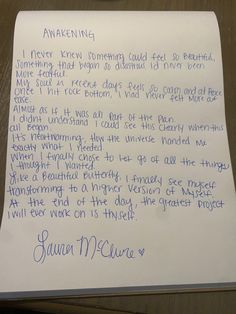 AWAKENING
I never knew something could feel so Beautiful,
Something that began so disastrous id never been
More fearful.
My soul in recent days feels so calm and at Peace
Once I hit rock Bottom, I had never felt more at
ease.
Almost as if it was all part of the Plan
I didn't understand I could see this clearly when this
all Began.
It's heartwarming, How the universe Handed Me
Exactly what I needed.
When I finally chose to let go of all the things
I thought I wanted.
Like a Beautiful Butterfly, I finally see myself
transforming to a higher version of Myself.
At the end of the day, the greatest Project
I will ever work on is thyself.
Laura McClure